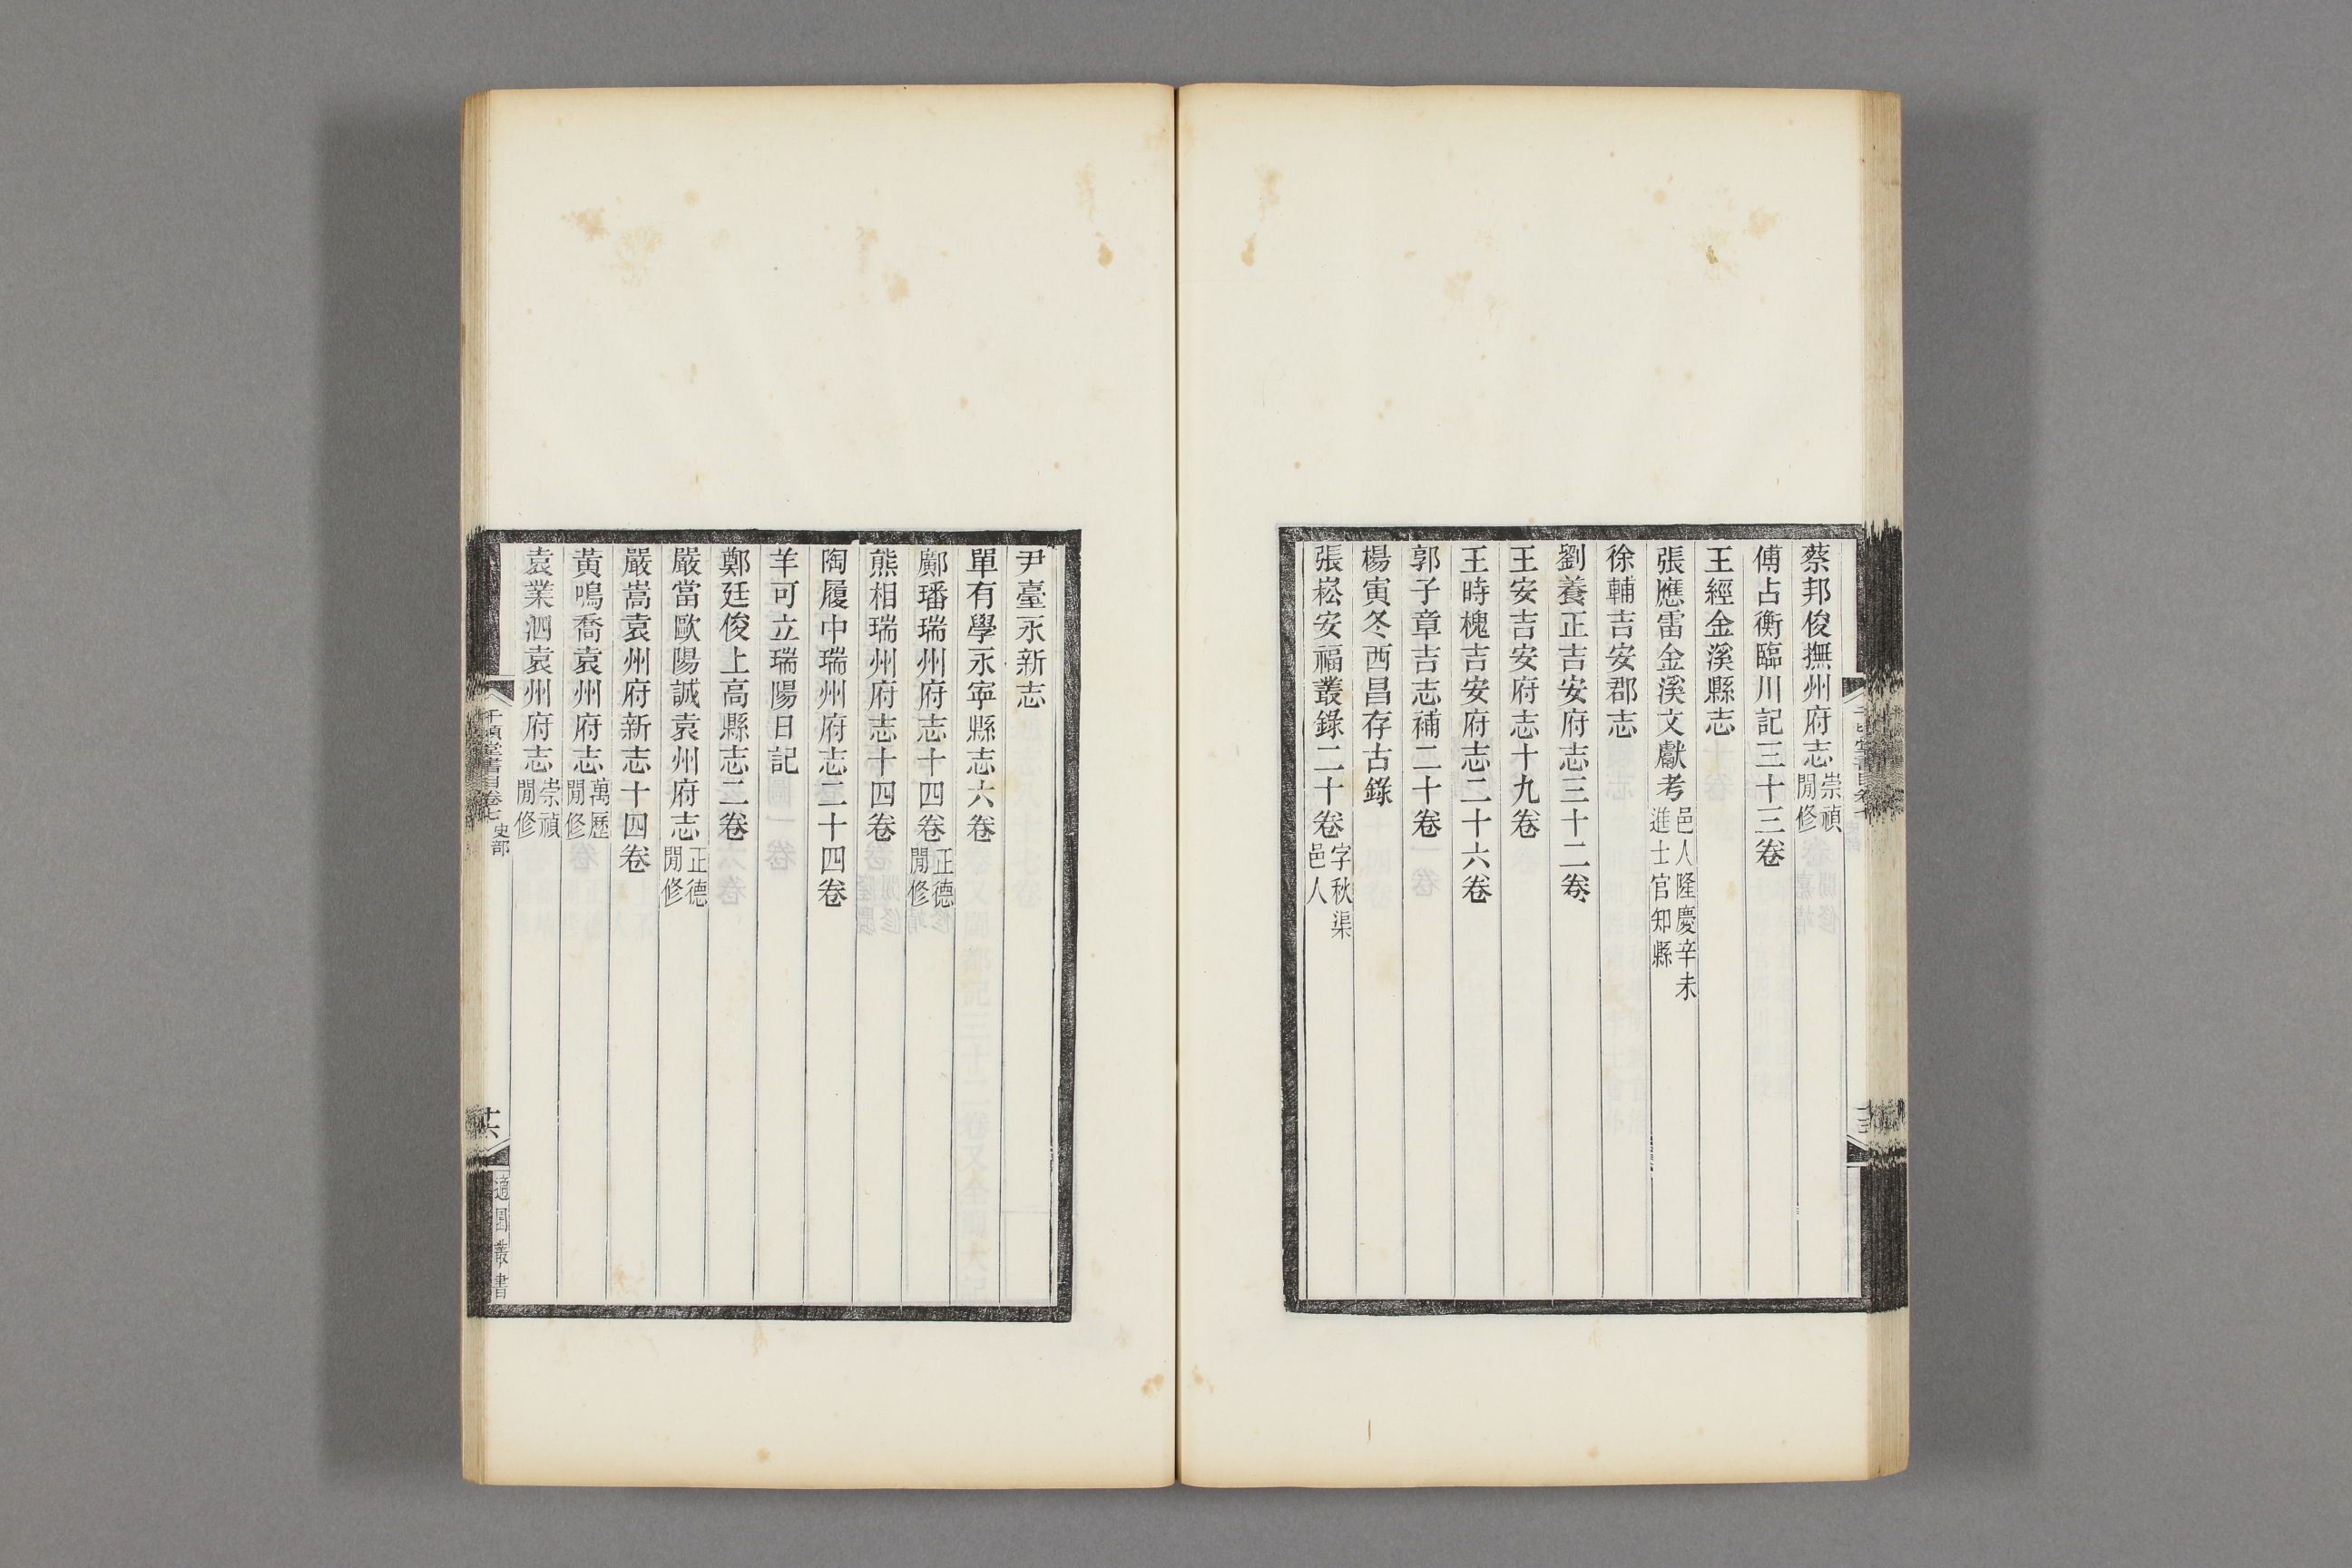 蔡邦俊撫州府志崇禎閒修
傅占衡臨川記三十三卷
王經金溪縣志
張應雷金溪文獻考邑人隆慶辛未進士官知縣
徐輔吉安郡志
劉養正吉安府志三十二卷
王安吉安府志十九卷
王時槐吉安府志二十六卷
郭子章吉志補二十卷
楊寅冬西昌存古錄
張崧安福叢錄二十卷字秋渠邑人
尹臺永新志
單有學永寧縣志六卷
鄺璠瑞州府志十四卷正德閒修
熊相瑞州府志十四卷
陶履中瑞州府志二十四卷
羊可立瑞陽日記
鄭廷俊上高縣志二卷
嚴當歐陽誠袁州府志正德閒修
嚴嵩袁州府新志十四卷
黃鳴喬袁州府志萬歷閒修
袁業泗袁州府志崇禎閒修
千頃堂書目卷七 史部
十六
適園叢書